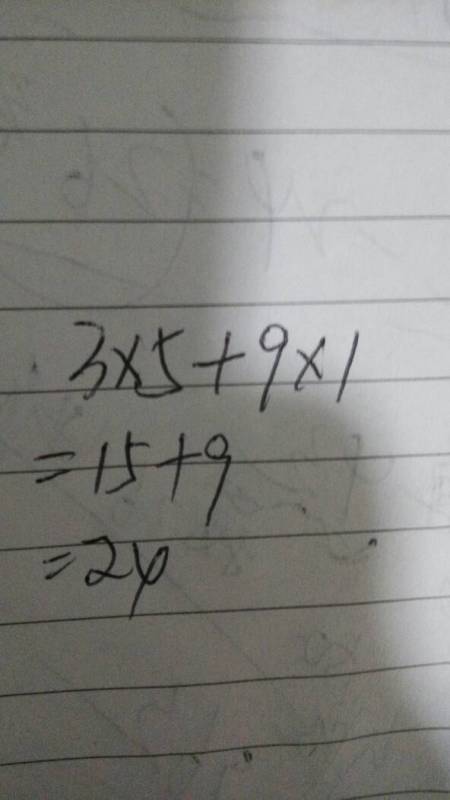 3×5+9×1
=15+9
=24